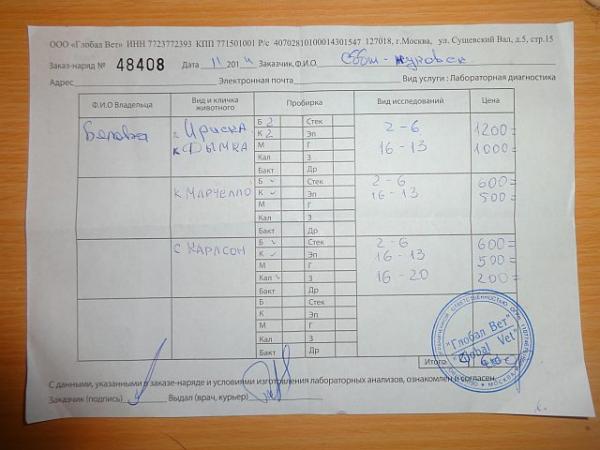 ООО «Глобал Вет» ИНН 7723772393 КПП 771501001 Р/с 40702810100014301547 127018, г.Москва, ул. Сущевский Вал, д.5, стр.15
Заказ-наряд № 48408 Дата 11 2014 Заказчик,Ф.И.О
Адрес Электронная почта Вид услуги : Лабораторная диагностика
Ф.И.О Владельца Вид и кличка животного Пробирка Вид исследований Цена
с. Ириска Б 2 Стек 2-6 1200=
к Дымка К 2 Эп 16-13 1000=
М Г
Кал З
Бакт Др
к Марчелло Б Стек 2-6 600=
К Эп 16-13 500=
М Г
Кал З
Бакт Др
с Карлсон Б Стек 2-6 600=
К Эп 16-13 500=
М Г 16-20 200=
Кал З
Бакт Др
Б Стек
К Эп
М Г
Кал З
Бакт Др
Итого
"Глобал Вет"
"Global Vet"
МОСКВА
С данными, указанными в заказе-наряде и условиями изготовления лабораторных анализов, ознакомлен и согласен.
Заказчик (подпись) Выдал (врач, курьер)